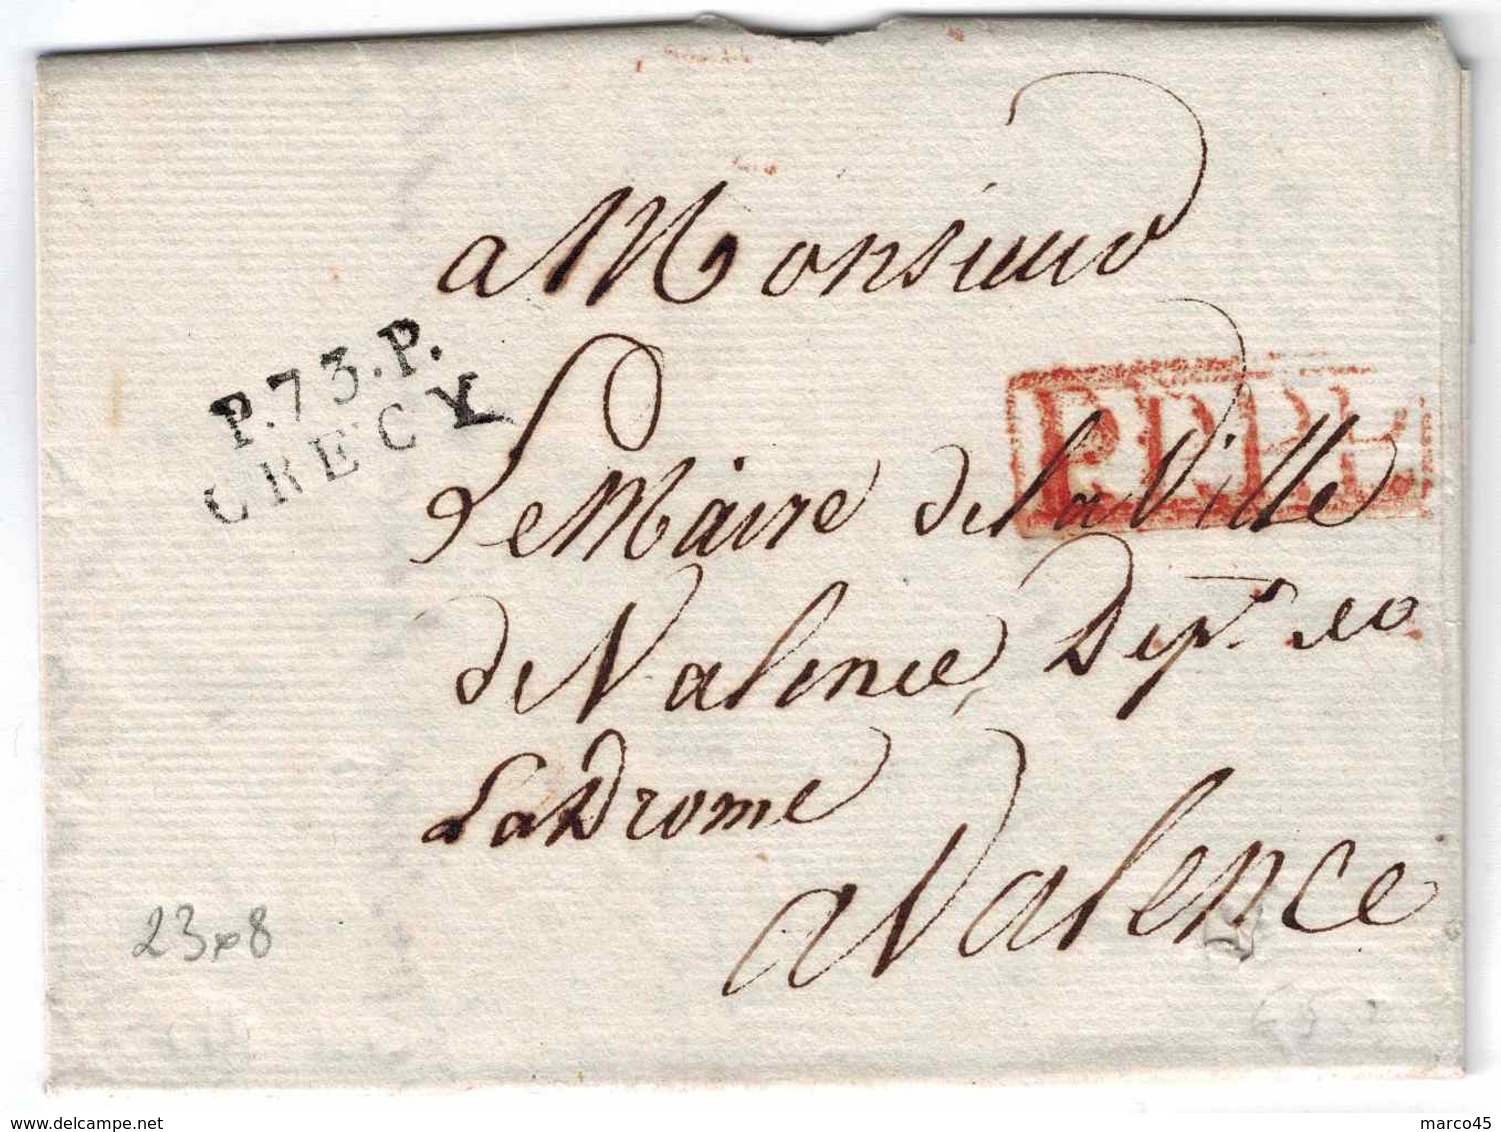 a Monsieur
P.73.P.
CRECY
P.P.P.P.
Le Maire de la Ville
de Valence, Dept. de
La Drome
a Valence
23x8
www.delcampe.net
marco45